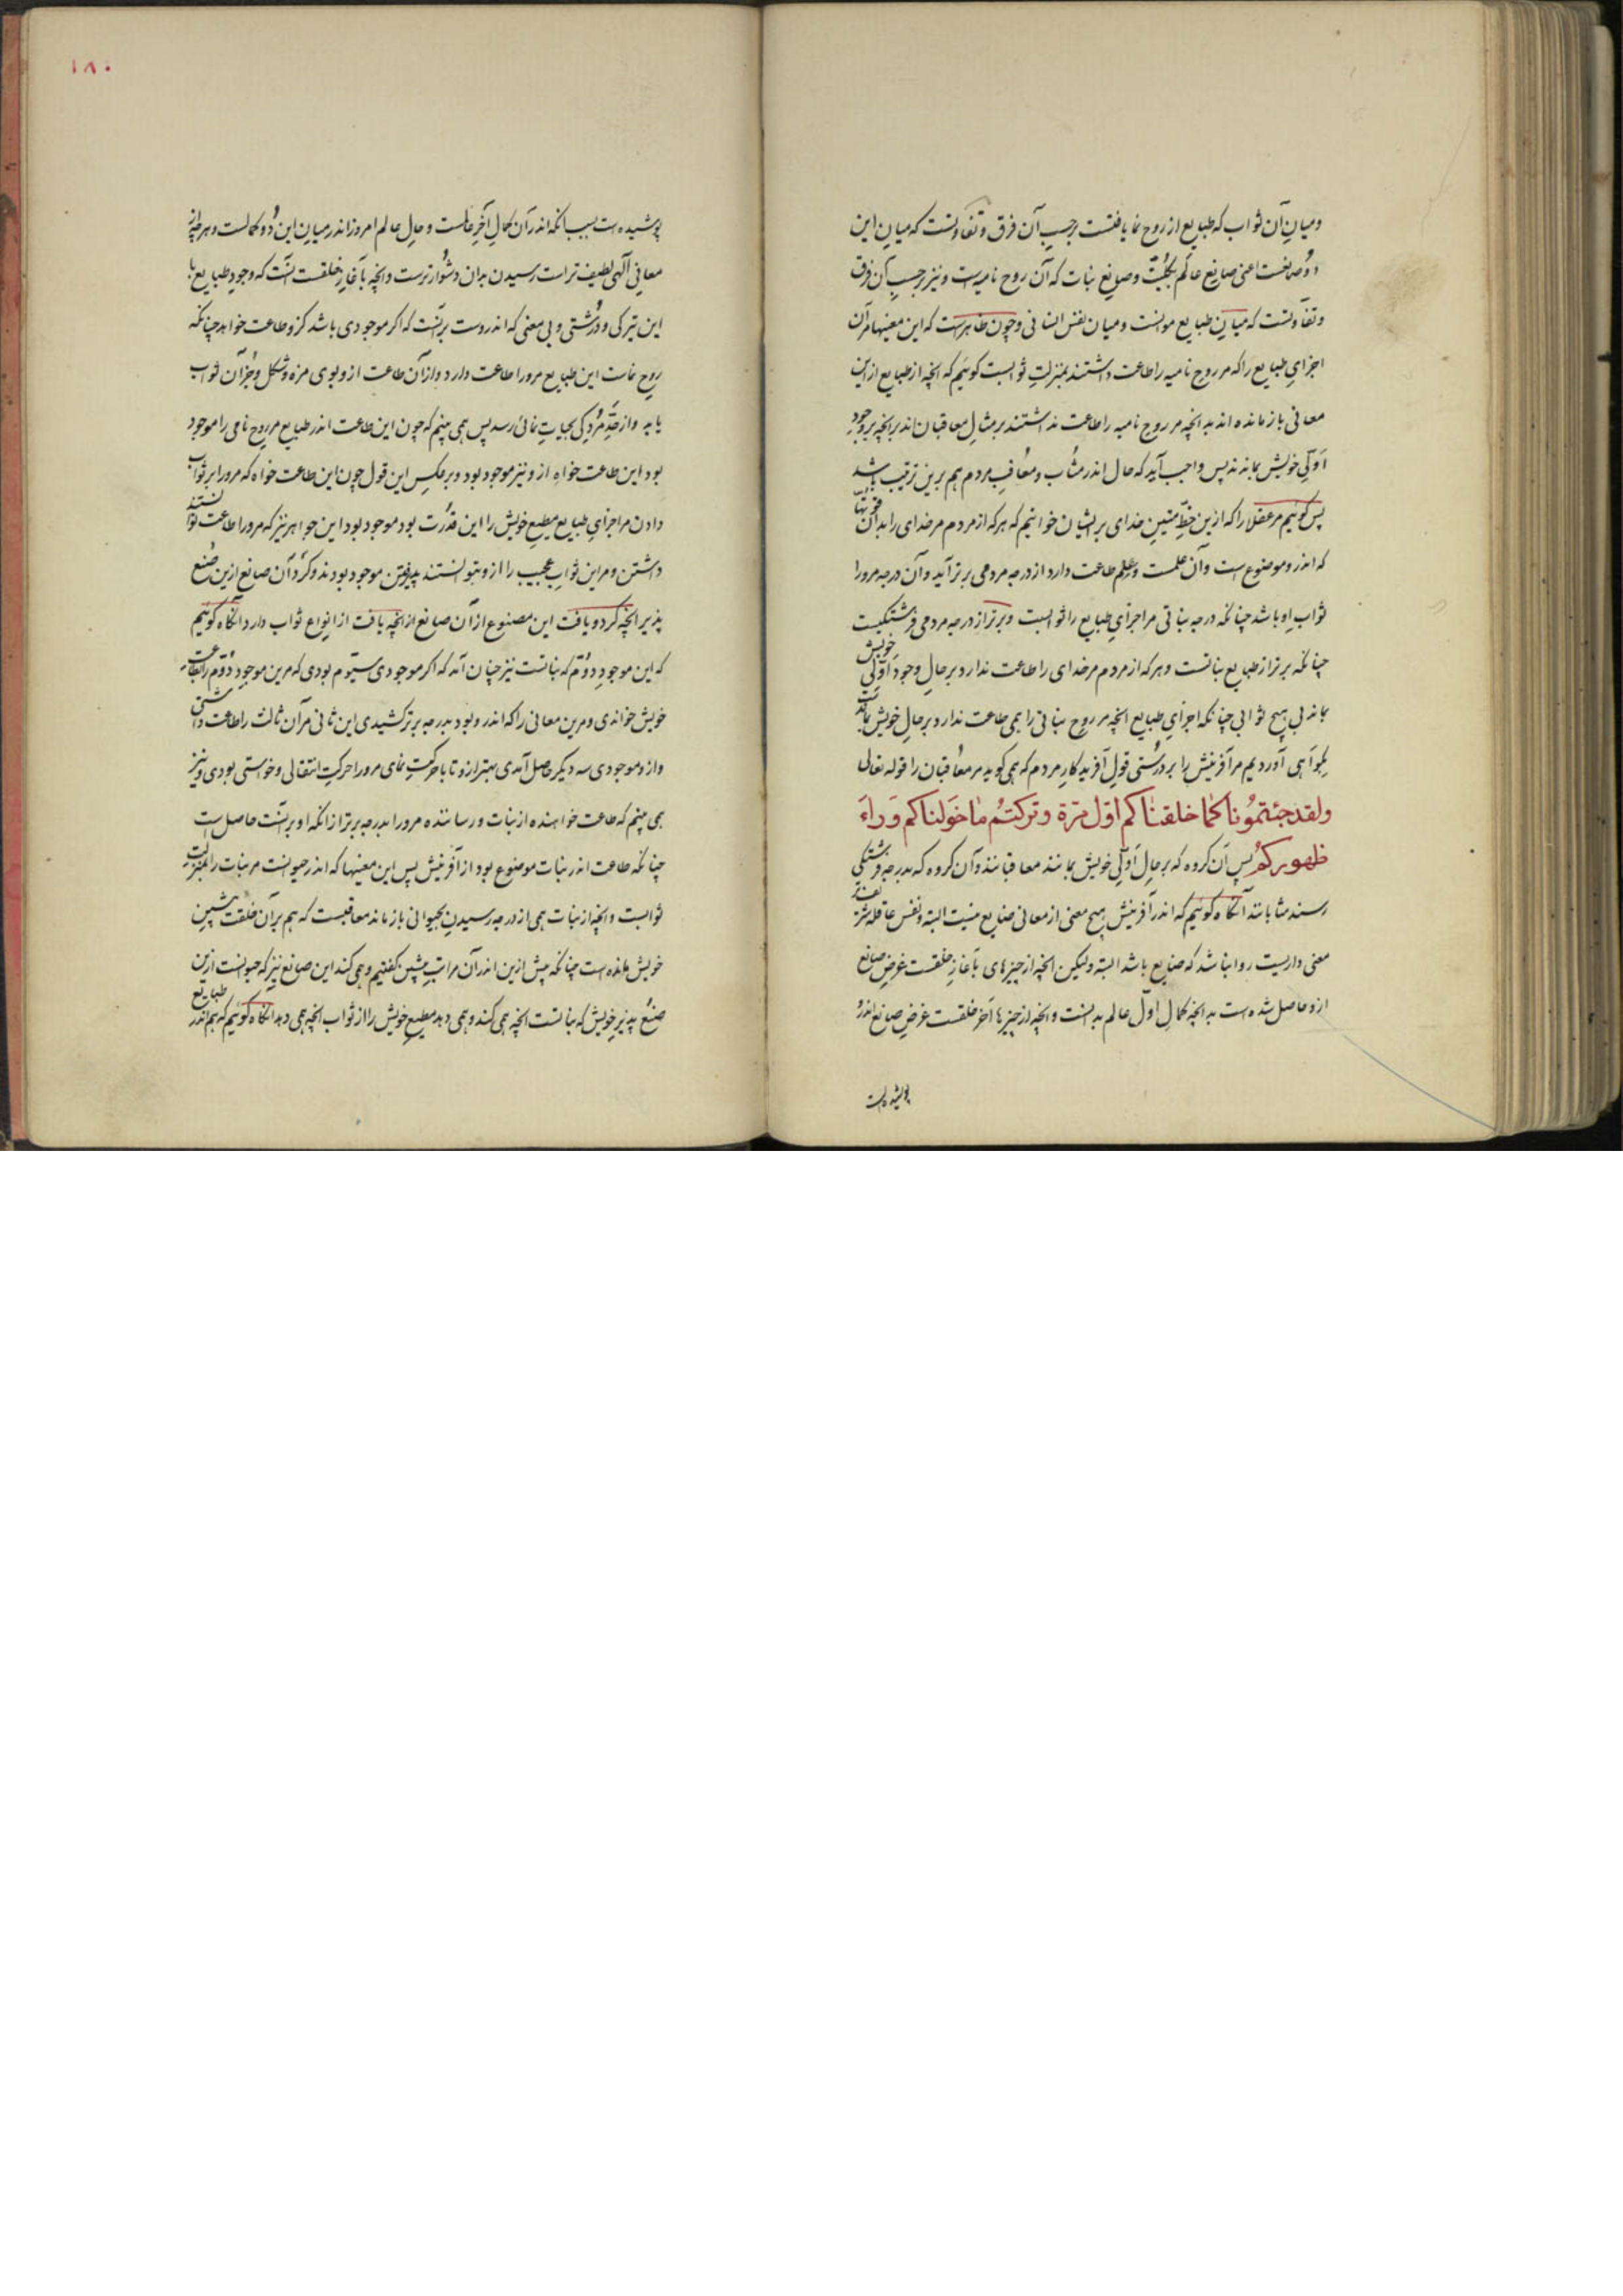 و میان آن ثواب که طبایع از روح نما یافتست برحسب آن فرق و تفاوتست که میان این
دو صانعست اعنی صانع عالم بکلیت و صانع نبات که آن روح نامیه است و نیز برحسب آن فرق
و تفاوتست که میان طبایع مواتست و میان نفس انسانی و چون ظاهرست که این معنیها مر آن
اجزای طبایع را که مر روح نامیه را طاعت داشتند بمنزلت ثوابست گوئیم که آنچه از طبایع ازین
معانی باز مانده اند بدانچه مر روح نامیه را طاعت نداشتند بر مثال معاقبان اند بدانچه بر وجود
اولی خویش بمانند پس واجب آید که حال اندر مثاب و معاقب مردم هم برین ترتیب باشد
پس گوئیم مر عقلا را که ازین خط متین خدای بر ایشان خوانیم که هر که از مردم مر خدای را بدان قوتها
که اندرو موضوع است و آن علمست و عمل طاعت دارد از درجه مردمی برتر آید و آن درجه مرورا
ثواب او باشد چنانکه درجه نباتی مر اجزای طبایع را ثوابست و برتر از درجه مردمی فرشتگیست
چنانکه برتر از طبایع نباتست و هر که از مردم مر خدای را طاعت ندارد بر حال وجود اولی خویش
بماند بی هیچ ثوابی چنانکه اجزای طبایع آنچه مر روح نباتی را همی طاعت ندارد بر حال خویش بماندست
بگواهی آوردیم مر آفرینش را بر درستی قول آفریدگار مردم که همی گوید مر معاقبان را قوله تعالی
ولقد جئتمونا کما خلقناکم اول مرة وترکتم ما خولناکم وراء
ظهورکم پس آن گروه که بر حال اولی خویش بمانند معاقبانند و آن گروه که بدرجه فرشتگی
رسند مثابانند آنگاه گوئیم که اندر آفرینش هیچ معنی از معانی ضایع نیست البته و نفس عاقله شریفتر
معنی داریست روا نباشد که ضایع باشد البته ولیکن آنچه از چیزهای بآغاز خلقست غرض صانع
ازو حاصل شده است بدانچه کمال اول عالم بدانست و آنچه از چیزها آخر خلقست غرض صانع اندرو
پوشیده است
۱۸۰
پوشیده است بسبب آنکه اندر آن کمال آخر عالمست و حال عالم امروز اندر میان این دو کمالست و هرچه از
معانی الهی لطیف تر است رسیدن بدان دشوارترست و آنچه بآغاز خلقست آنست که وجود طبایع با
این تیرگی و درشتی و بی معنی که اندروست برآنست که اگر موجودی باشد کزو طاعت خواهد چنانکه
روح نماست این طبایع مرورا طاعت دارد و از آن طاعت ازو بوی و مزه و شکل و جز آن ثواب
یابد و از حد مردگی بحیات نمائی رسد پس همی بینیم که چون این طاعت اندر طبایع مر روح نامی را موجود
بود این طاعت خواه ازو نیز موجود بود و بر عکس این قول چون این طاعت خواه که مرورا بر ثواب
دادن مر اجزای طبایع مطیع خویش را این قدرت بود موجود بود این جواهر نیز که مرورا طاعت توانستند
داشتن و مر این ثواب عجیب را ازو بتوانستند پذیرفتن موجود بودند و کرد آن صانع ازین صنع
پذیر آنچه کرد و یافت این مصنوع از آن صانع از آنچه یافت از انواع ثواب دارد آنگاه گوئیم
که این موجود دوم که نباتست نیز چنان آمد که اگر موجودی سیوم بودی که مرین موجود دوم را بطاعت
خویش خواندی و مرین معانی را که اندرو بود بدرجه برتر کشیدی این ثانی مر آن ثالث را طاعت داشتی
و ازو موجودی سه دیگر حاصل آمدی بهتر ازو تا با حرکت نمای مرورا حرکت انتقالی و خواستی بودی و نیز
همی بینیم که طاعت خواهنده از نبات و رساننده مرورا بدرجه برتر از آنکه او برآنست حاصل است
چنانکه طاعت اندر نبات موضوع بود از آفرینش پس این معنیها که اندر حیوانست مر نبات را بمنزلت
ثوابست و آنچه از نبات همی از درجه رسیدن بحیوانی باز ماند معاقبست که هم بر آن خلقت پیشین
خویش مانده است چنانکه پیش ازین اندر آن مراتب پیشین گفتیم و همی کند این صانع نیز که حیوانست ازین
صنع پذیر خویش که نباتست آنچه همی کند و همی دهد مطیع خویش را از ثواب آنچه همی دهد آنگاه گوئیم که هم اندر طبایع